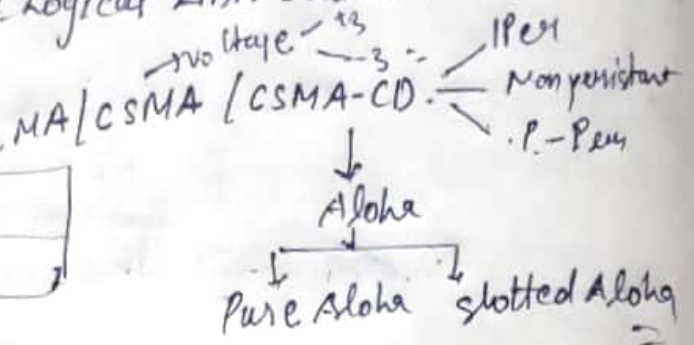 Logical
Voltage +3
-3
1Per
MA/CSMA/CSMA-CD.
Nonpersistant
P-Pers
Aloha
Pure Aloha slotted Aloha